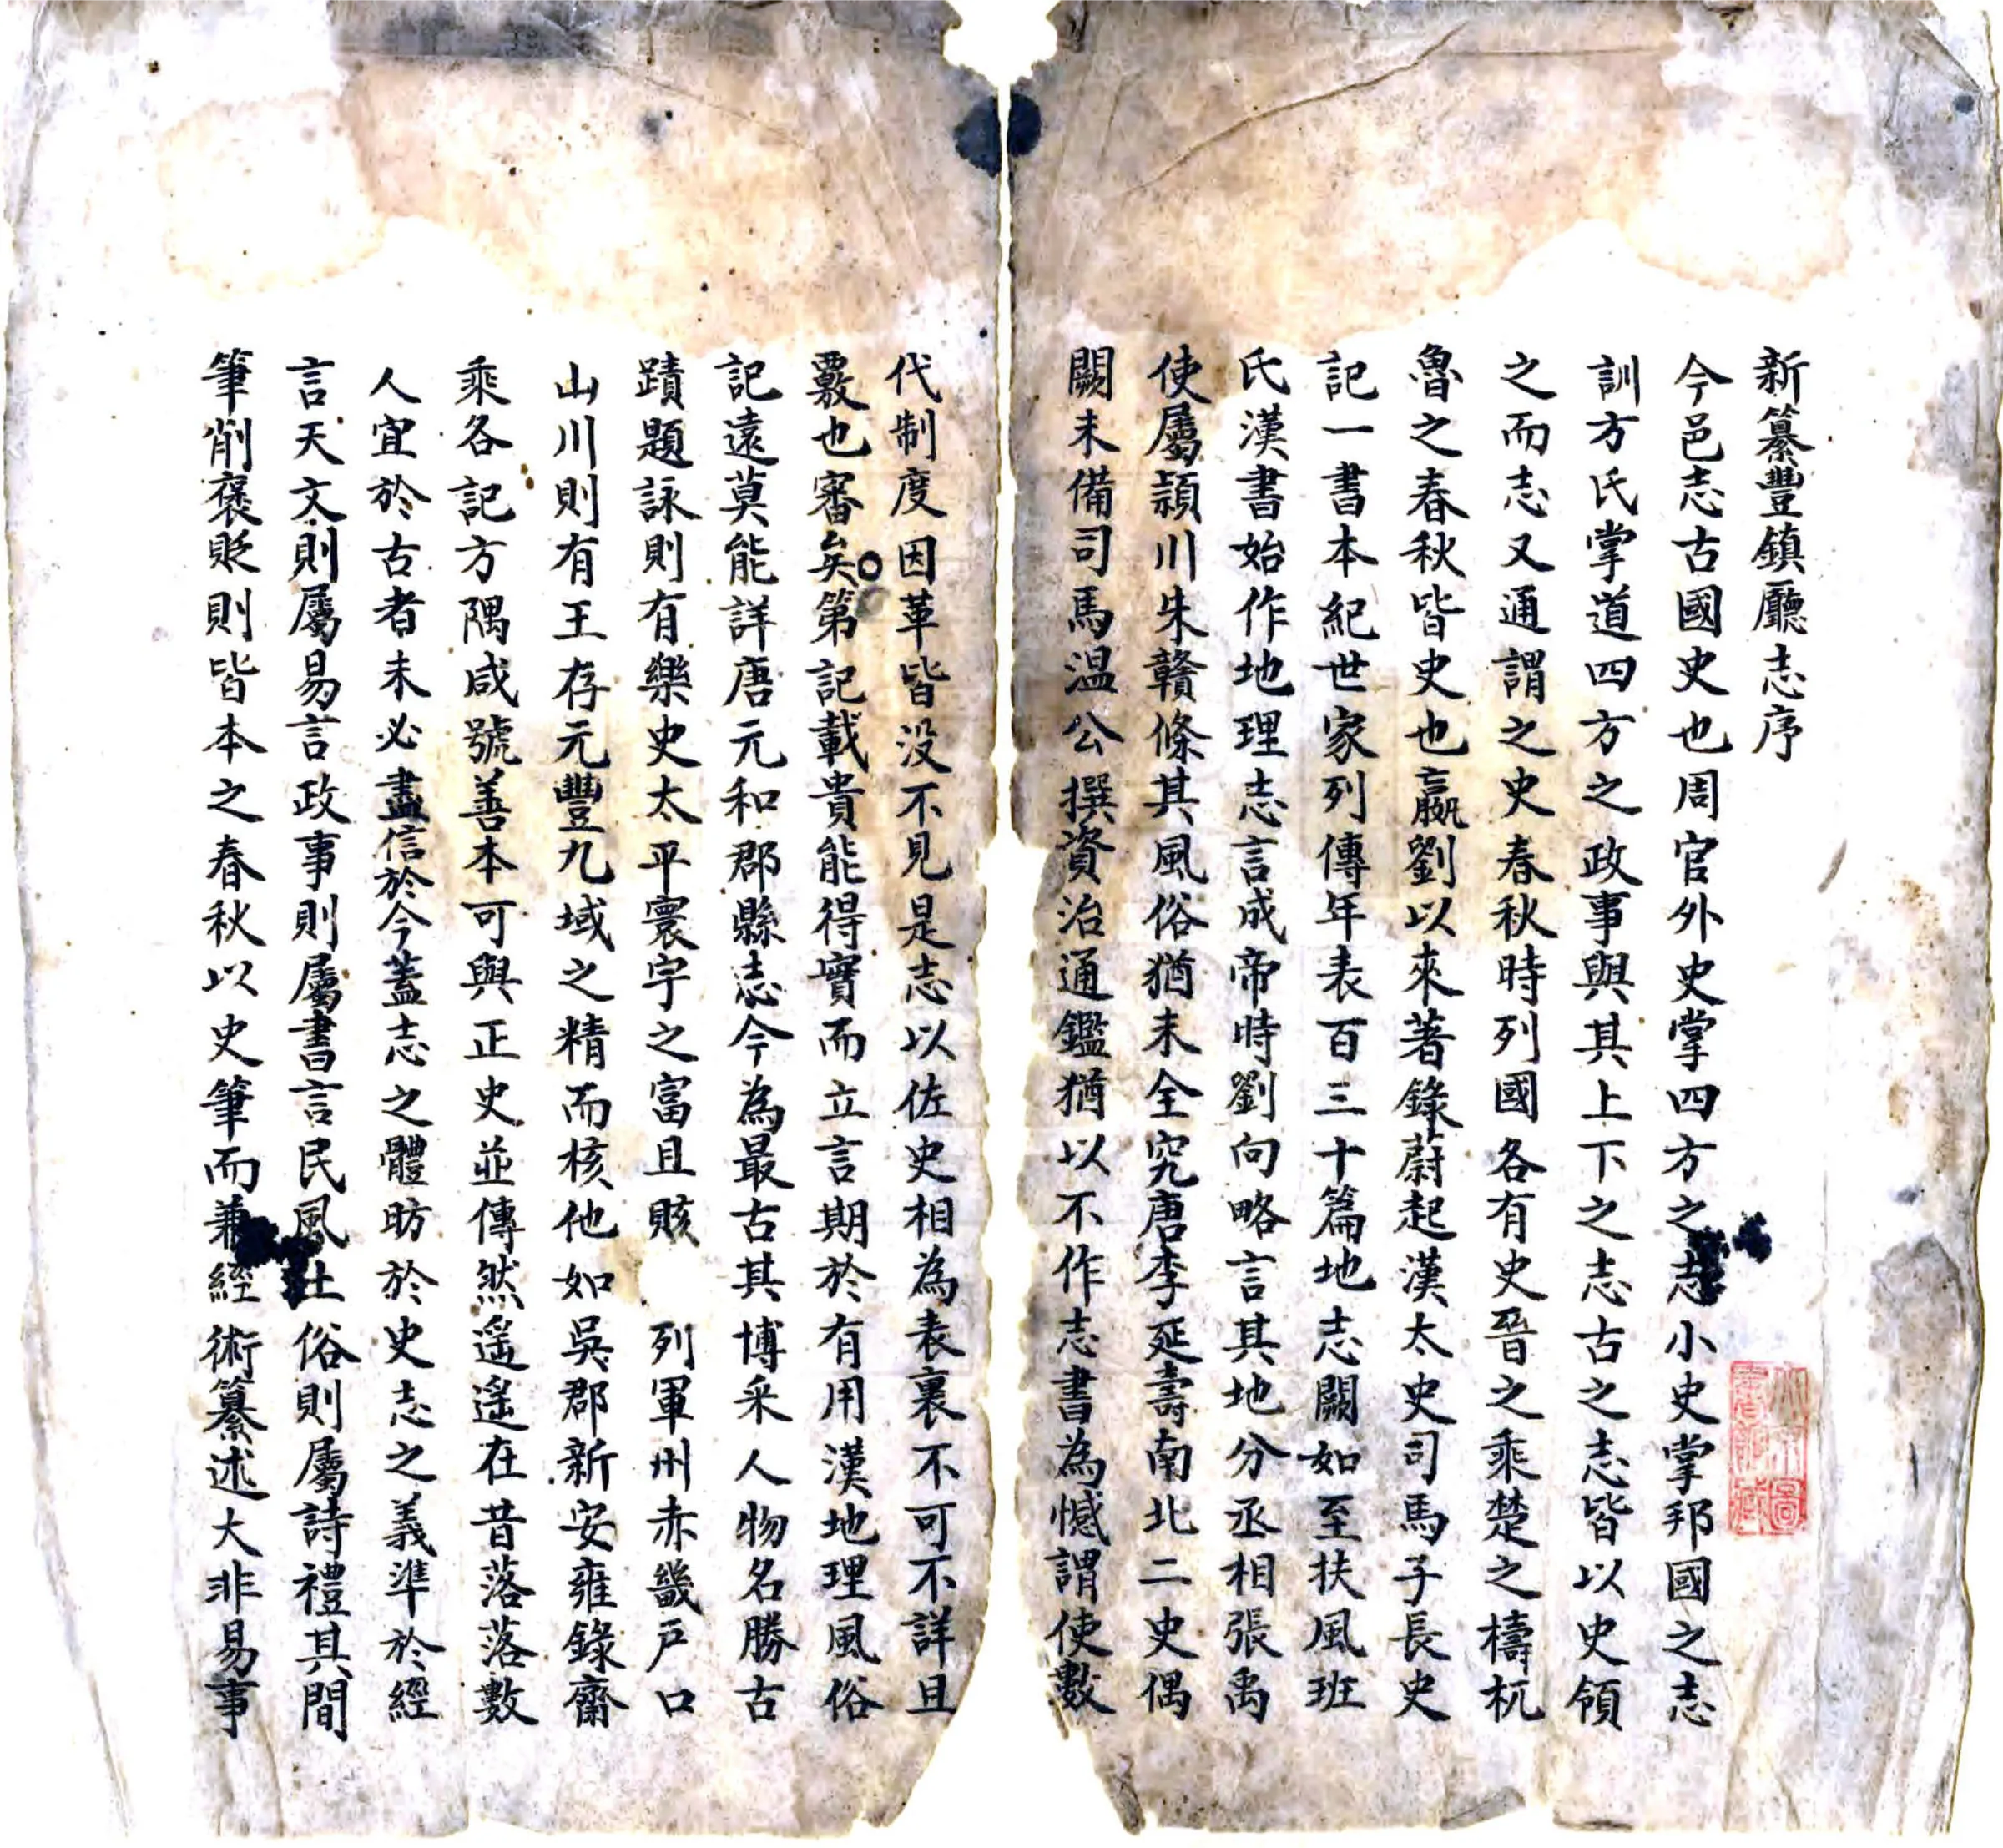 新纂豐鎮廳志序
今邑志古國史也周官外史掌四方之志小史掌邦國之志
訓方氏掌道四方之政事與其上下之志古之志皆以史領
之而志又通謂之史春秋時列國各有史晉之乘楚之檮杌
魯之春秋皆史也嬴劉以來著錄蔚起漢太史司馬子長史
記一書本紀世家列傳年表百三十篇地志闕如至扶風班
氏漢書始作地理志言成帝時劉向略言其地分丞相張禹
使屬潁川朱贛條其風俗猶未全究唐李延壽南北二史偶
闕未備司馬溫公撰資治通鑑猶以不作志書為憾謂使數
代制度因革皆沒不見是志以佐史相為表裏不可不詳且
覈也審矣第記載貴能得實而立言期於有用漢地理風俗
記遠莫能詳唐元和郡縣志今為最古其博采人物名勝古
蹟題詠則有樂史太平寰宇之富且賅 列軍州赤畿戶口
山川則有王存元豐九域之精而核他如吳郡新安雍錄齋
乘各記方隅咸號善本可與正史並傳然遙遙在昔落落數
人宜於古者未必盡信於今蓋志之體昉於史志之義準於經
言天文則屬易言政事則屬書言民風土俗則屬詩禮其間
筆削褒貶則皆本之春秋以史筆而兼經術纂述大非易事